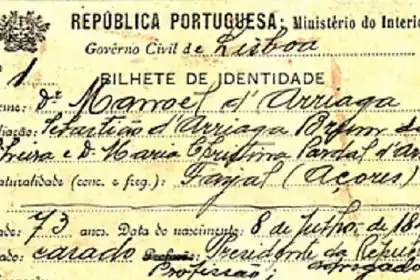 REPÚBLICA PORTUGUESA; Ministério do Interi
Govêrno Civil de Lisboa
º 1
BILHETE DE IDENTIDADE
ome: Dr Manoel d'Arriaga
liação: Sebastião d'Arriaga Brum da
lveira e D. Maria Cristina Pardal d'Ar
aturalidade (conc. e freg.): Fayal (Açores)
ade: 73 anos. Data do nascimento: 8 de Julho de 18
ado: casado Presidente da Repúb
Profissão: